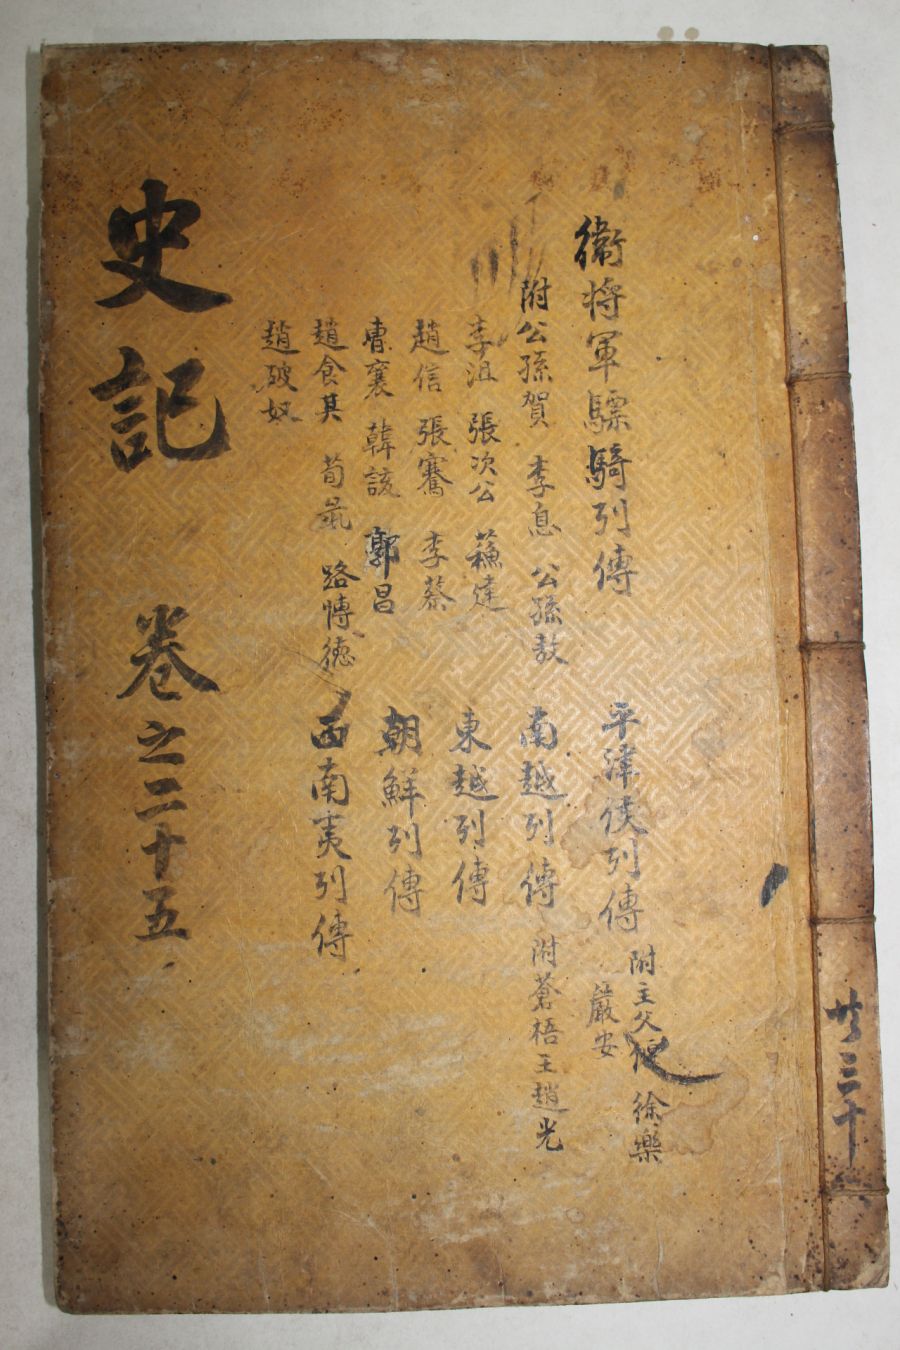 衛將軍驃騎列傳
附公孫賀 李息 公孫敖
李沮 張次公 蘇建
趙信 張騫 李蔡
曺襄 韓說 郭昌
趙食其 荀彘 路博德
趙破奴
平津侯列傳 附主父偃 徐樂
嚴安
南越列傳 附蒼梧王趙光
東越列傳
朝鮮列傳
西南夷列傳
史記 卷之二十五
共三十